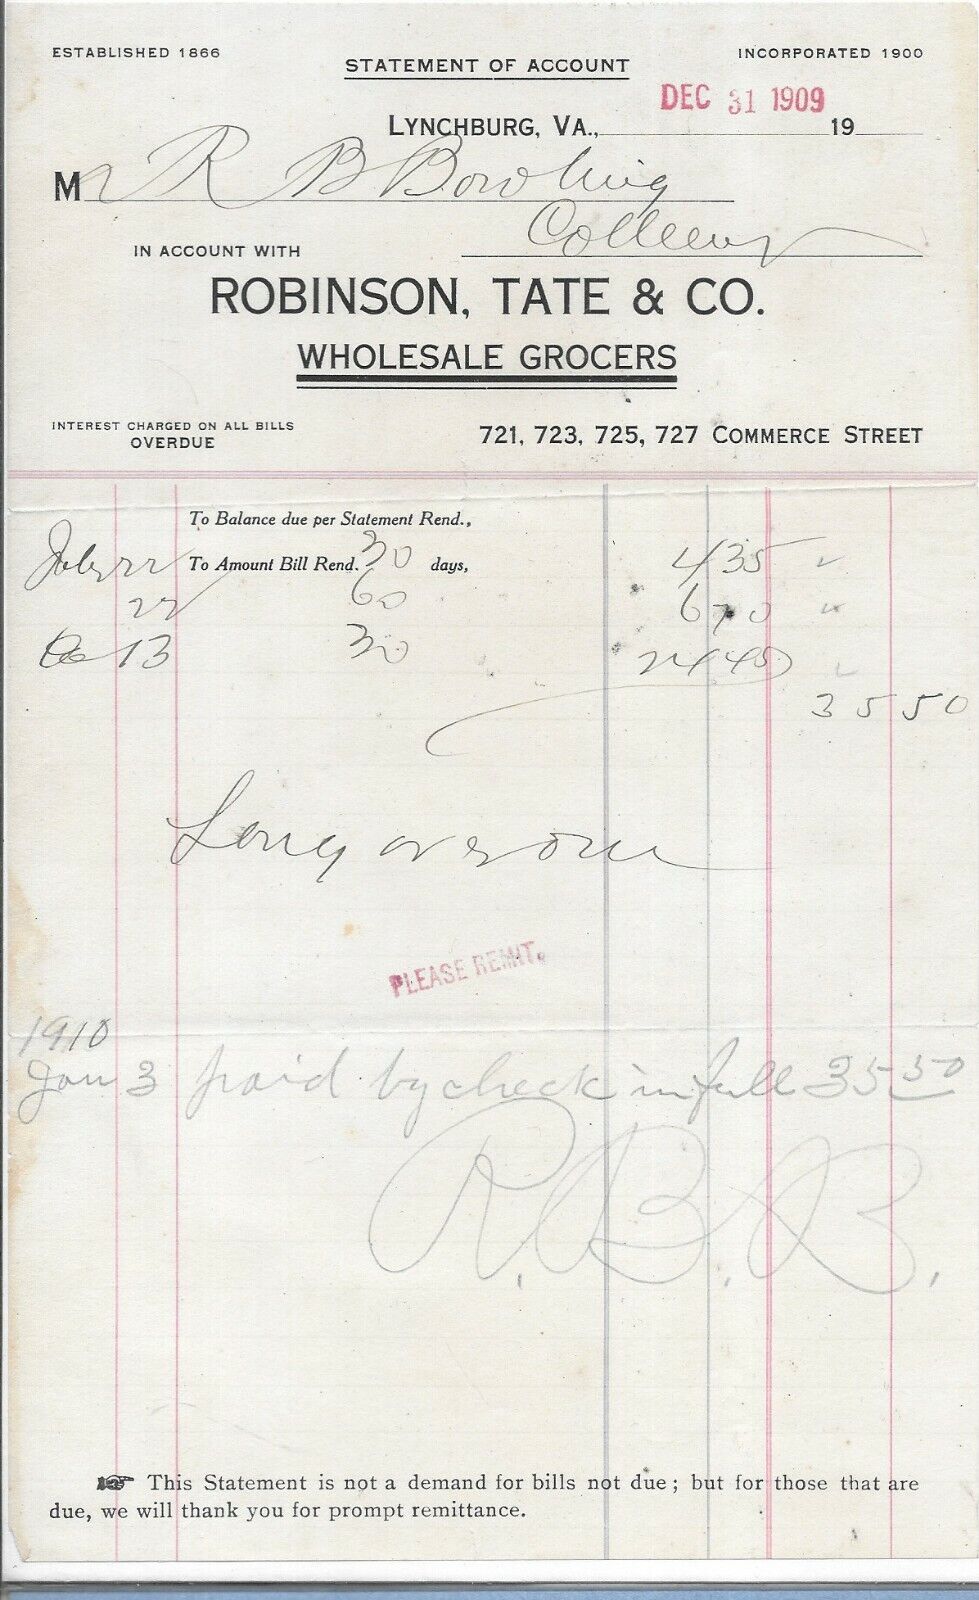 ESTABLISHED 1866
INCORPORATED 1900
STATEMENT OF ACCOUNT
DEC 31 1909
LYNCHBURG, VA., 19
Mr R B Bowling
Colleen
IN ACCOUNT WITH
ROBINSON, TATE & CO.
WHOLESALE GROCERS
INTEREST CHARGED ON ALL BILLS
OVERDUE
721, 723, 725, 727 COMMERCE STREET
To Balance due per Statement Rend.,
July 22 To Amount Bill Rend. 30 days, 4 35
22 60 6 70
13 30 24 45
35 50
Long over due
PLEASE REMIT.
1910
Jan 3 paid by check in full 35 50
R. B. B.
☞ This Statement is not a demand for bills not due; but for those that are
due, we will thank you for prompt remittance.